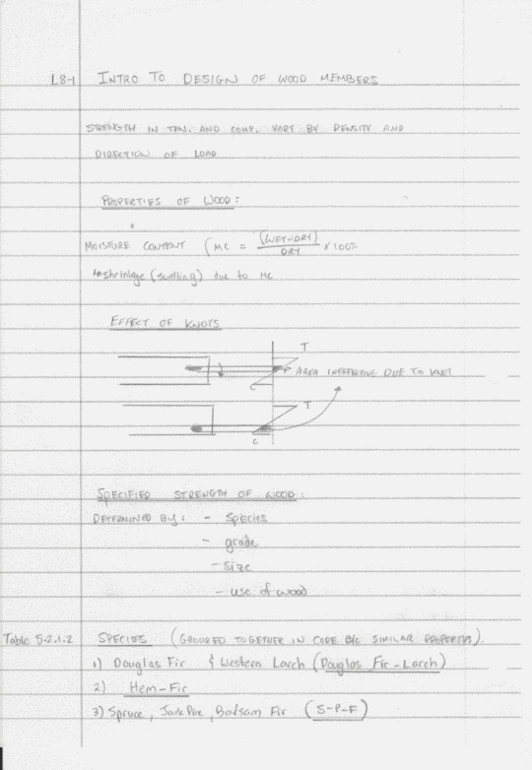 L8-1 INTRO TO DESIGN OF WOOD MEMBERS
STRENGTH IN TEN. AND COMP. VARY BY DENSITY AND
DIRECTION OF LOAD
PROPERTIES OF WOOD:
MOISTURE CONTENT (MC = (WET-DRY) / DRY x 100%
↳ shrinkage (swelling) due to MC
EFFECT OF KNOTS
T
AREA INEFFECTIVE DUE TO KNOT
C
T
C
SPECIFIED STRENGTH OF WOOD:
DETERMINED BY: - Species
- grade
- size
- use of wood
Table 5.2.1.2 SPECIES (GROUPED TOGETHER IN CODE B/C SIMILAR PROPERTIES).
1) Douglas Fir & Western Larch (Douglas Fir-Larch)
2) Hem-Fir
3) Spruce, Jack Pine, Balsam Fir (S-P-F)